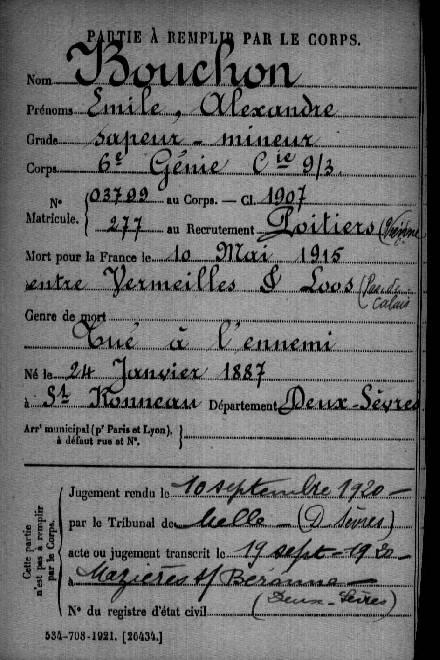 PARTIE À REMPLIR PAR LE CORPS.
Nom Bouchon
Prénoms Emile, Alexandre
Grade sapeur-mineur
Corps 6e Génie Cie 9/3.
N° 03799 au Corps. — Cl. 1907
Matricule. 277 au Recrutement Poitiers (Vienne
Mort pour la France le 10 Mai 1915
entre Vermeilles & Loos (Pas de
Calais
Genre de mort
Tué à l'ennemi
Né le 24 Janvier 1887
à St Romneau Département Deux-Sèvres
Arrt municipal (pr Paris et Lyon),
à défaut rue et N°.
Cette partie
n'est pas à remplir
par le Corps.
Jugement rendu le 10 septembre 1920 —
par le Tribunal de Melle — (D Sèvres)
acte ou jugement transcrit le 19 sept - 1920 -
à Mazières s/ Béronne —
(Deux-Sèvres)
N° du registre d'état civil
534-708-1921. [26434.]